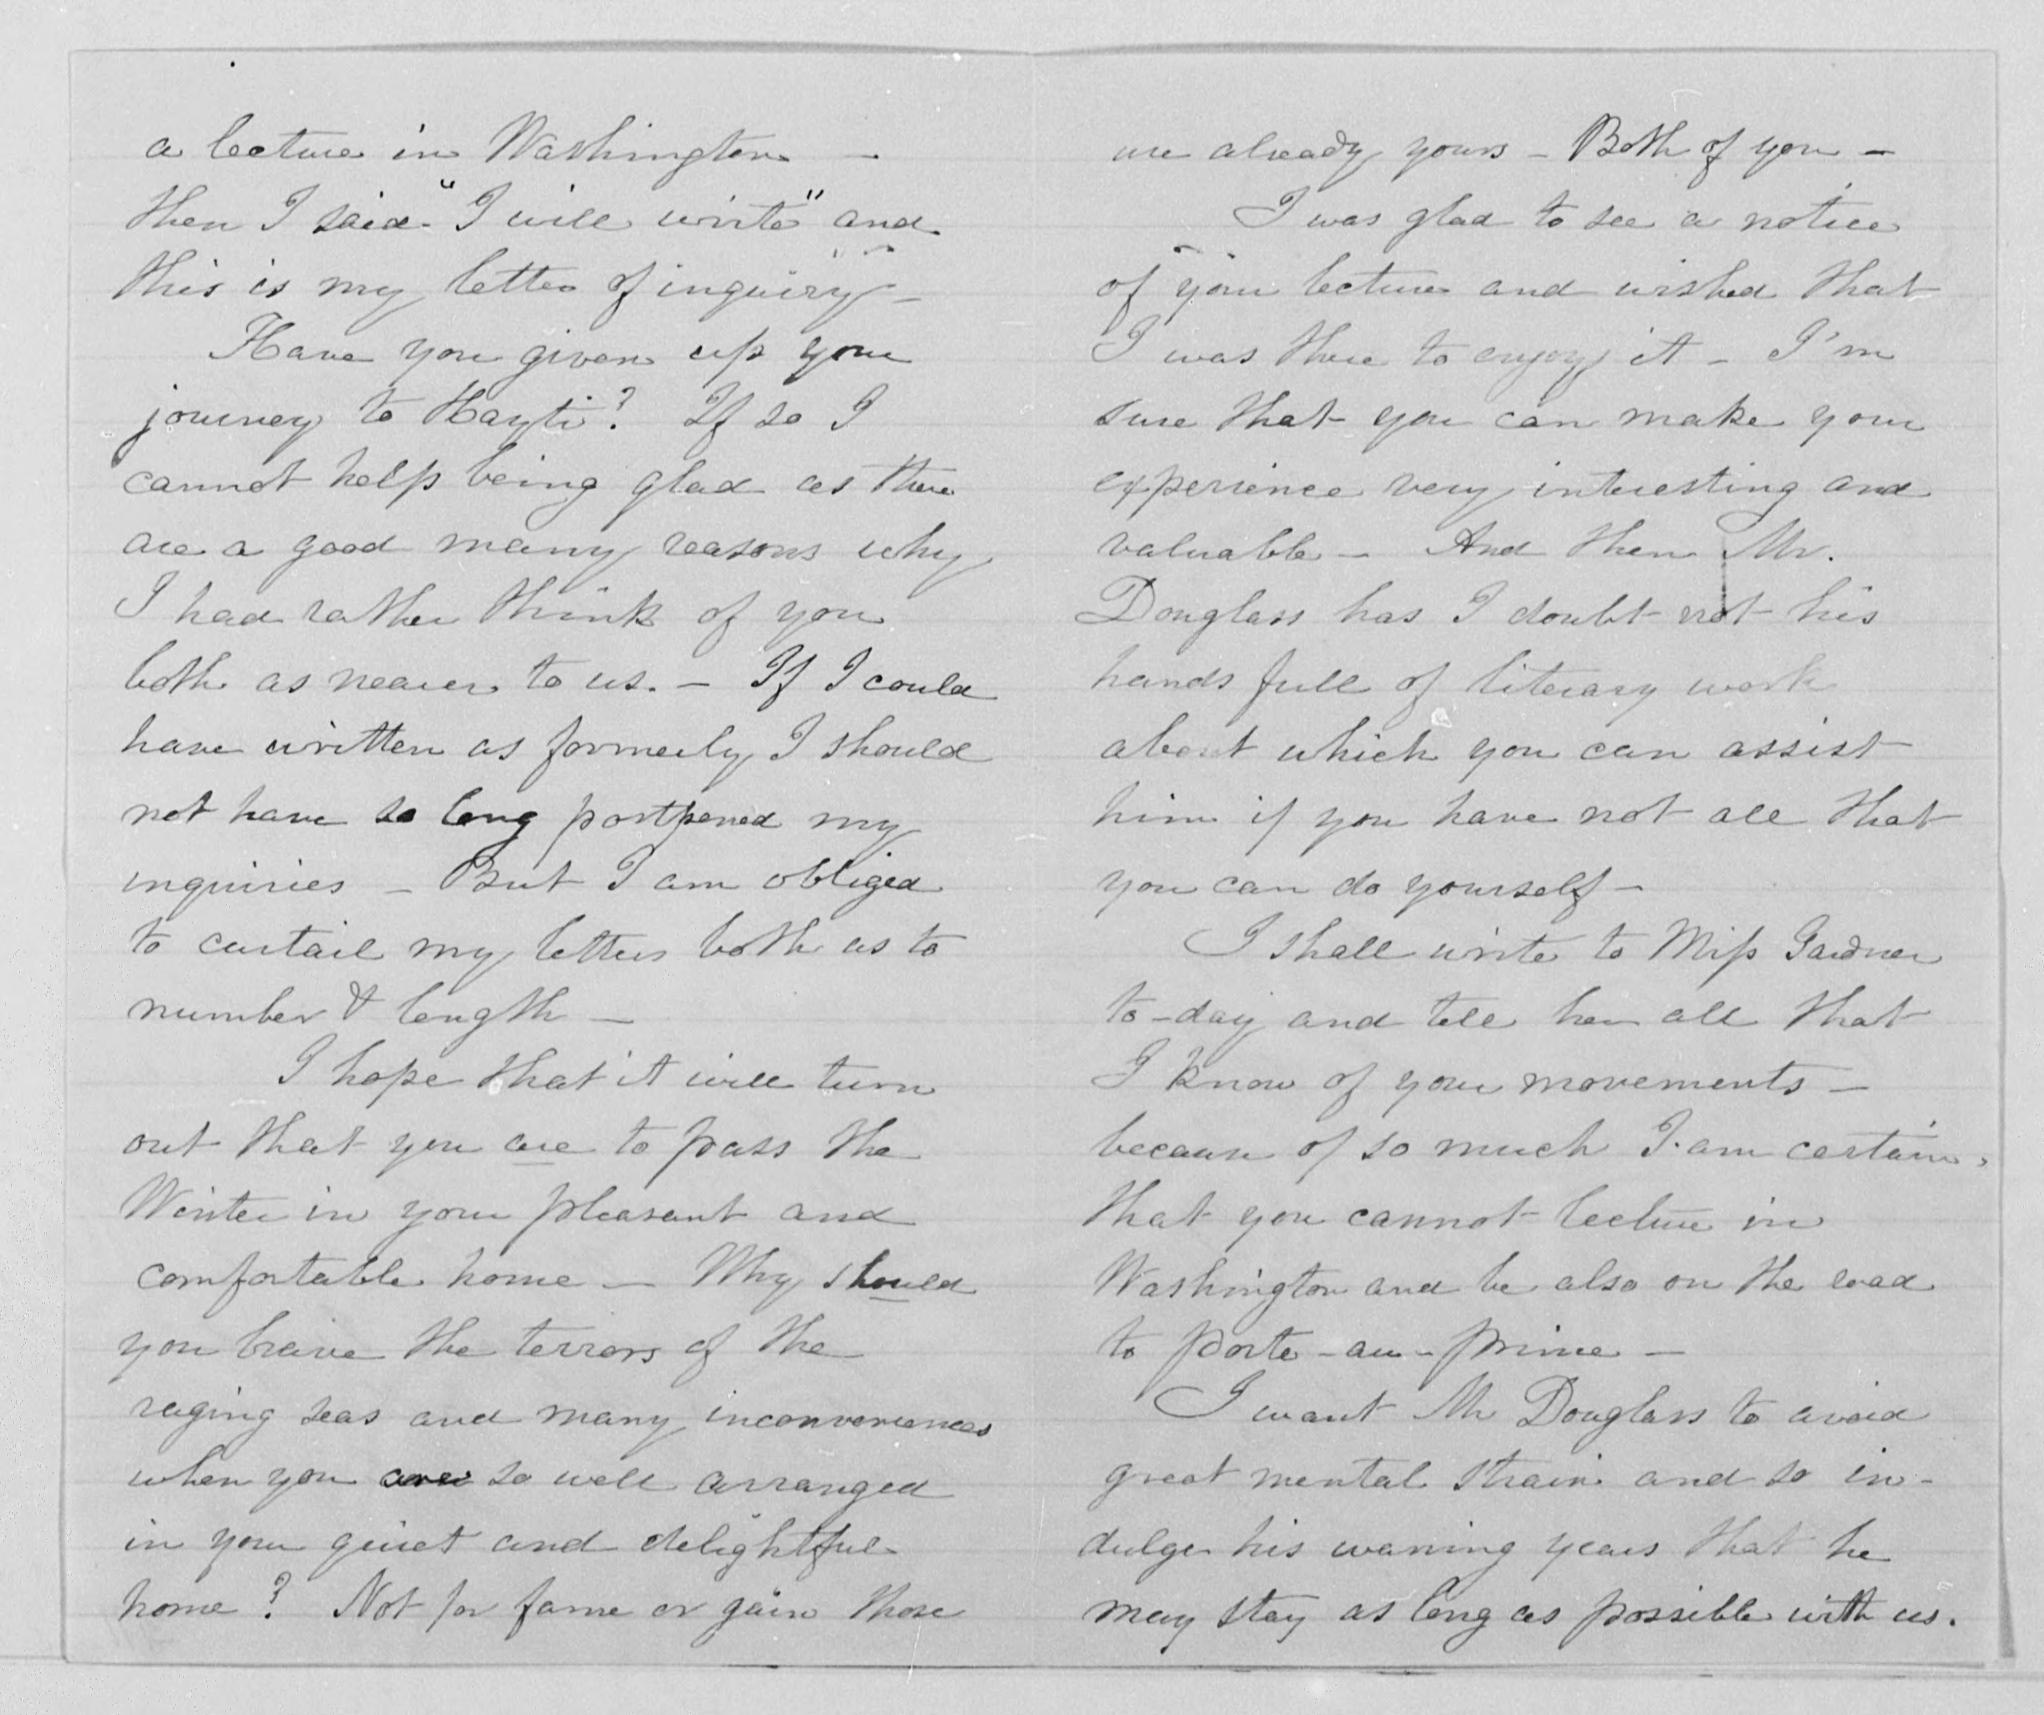 a lecture in Washington —
then I said "I will write" and
this is my letter of inquiry —
Have you given up your
journey to Hayti? If so I
cannot help being glad as there
are a good many reasons why
I had rather think of you
both as nearer to us. — If I could
have written as formerly I should
not have so long postponed my
inquiries — But I am obliged
to curtail my letters both as to
number & length —
I hope that it will turn
out that you are to pass the
Winter in your pleasant and
comfortable home — Why should
you brave the terrors of the
raging seas and many inconveniences
when you are so well arranged
in your quiet and delightful
home? Not for fame or gain those
are already yours — Both of you —
I was glad to see a notice
of your lecture and wished that
I was there to enjoy it — I'm
sure that you can make your
experience very interesting and
valuable — And then Mr.
Douglass has I doubt not his
hands full of literary work
about which you can assist
him if you have not all that
you can do yourself —
I shall write to Miss Gardner
to-day and tell her all that
I know of your movements —
because of so much I am certain,
that you cannot lecture in
Washington and be also on the road
to Porte-au-Prince —
I want Mr Douglass to avoid
great mental strain and so in-
dulge his waning years that he
may stay as long as possible with us.